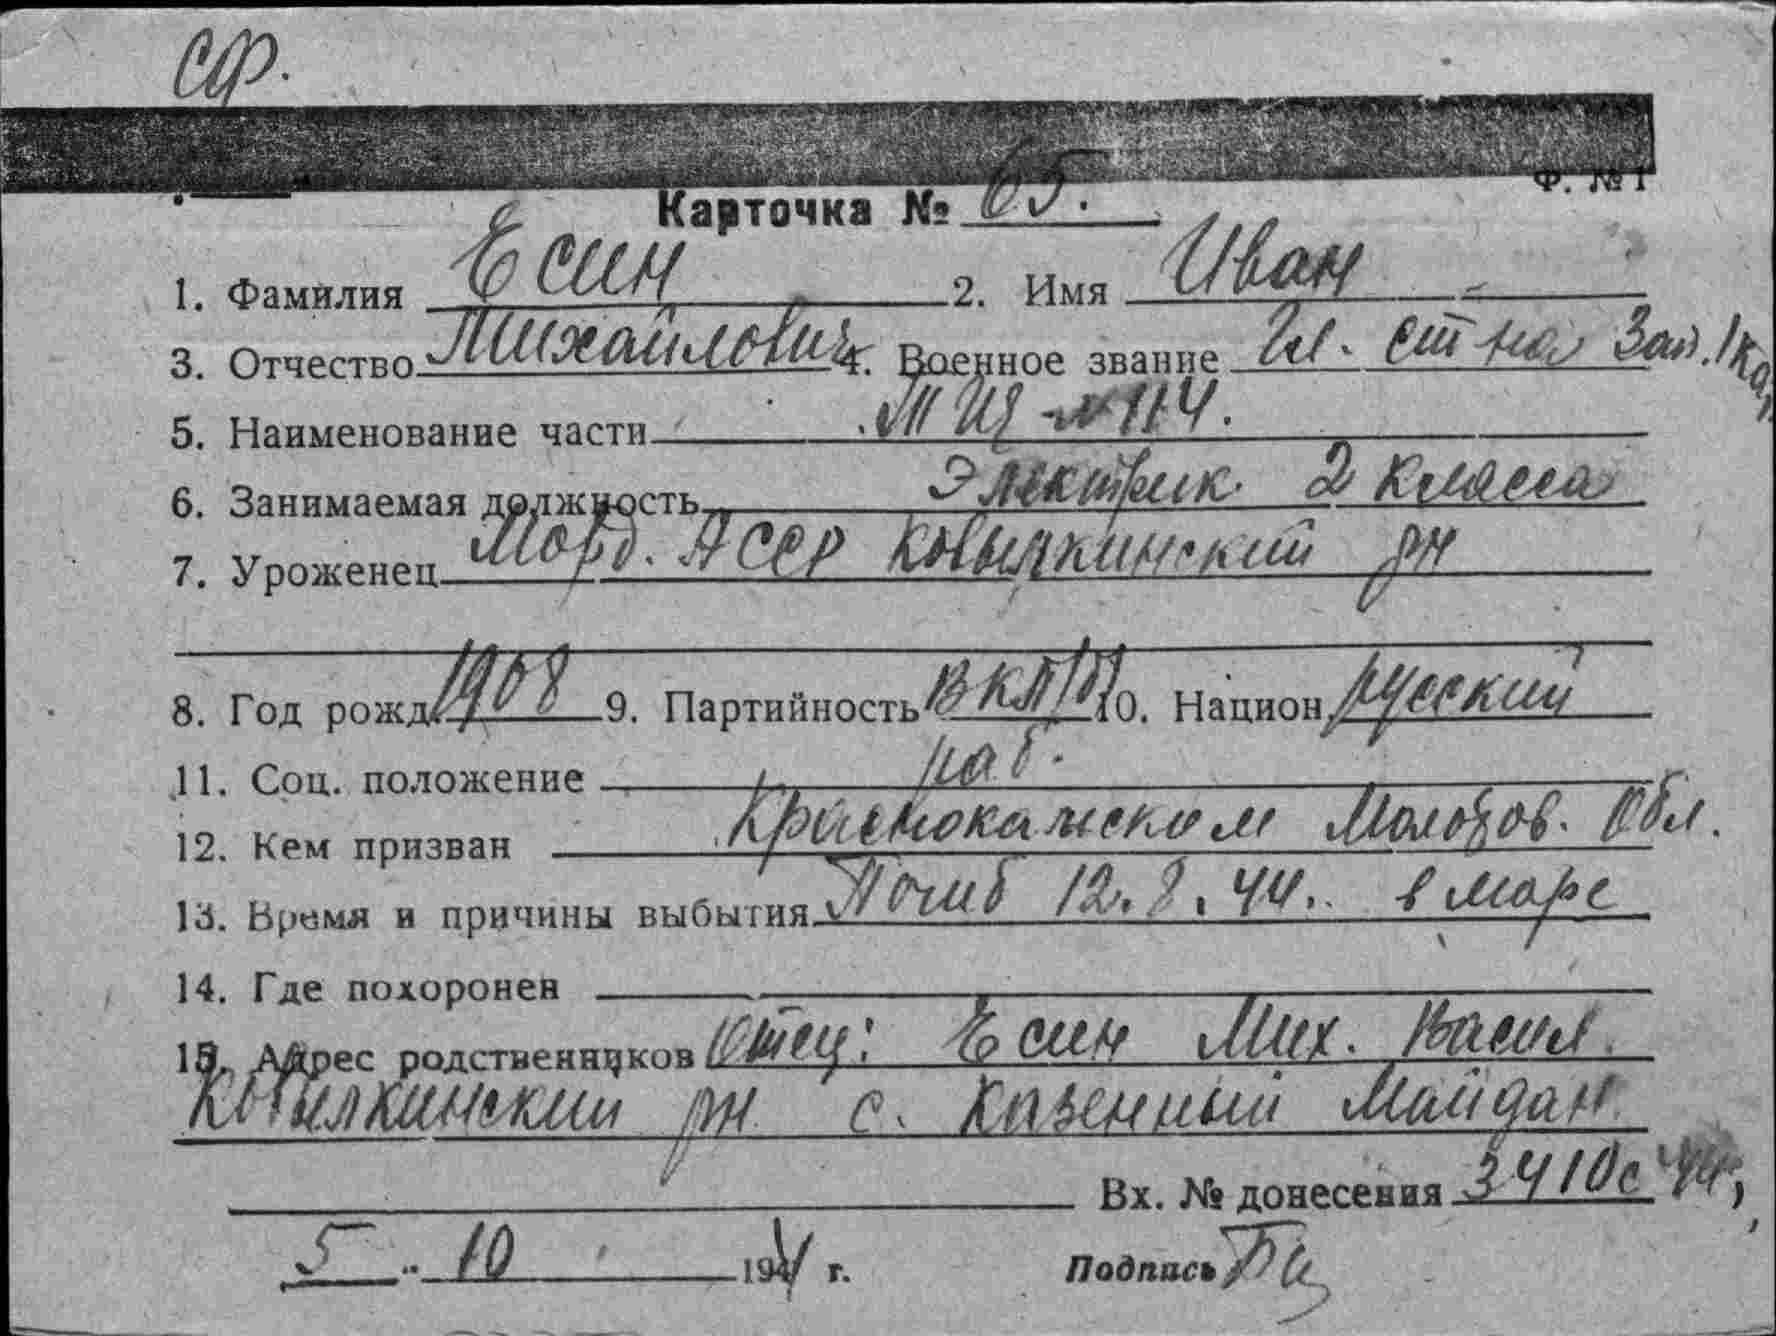 СФ.
Ф. № 1
Карточка № 65.
1. Фамилия Есин 2. Имя Иван
3. Отчество Михайлович 4. Военное звание Гл. ст-на Зап. 1 ка,
5. Наименование части ТЩ-№114.
6. Занимаемая должность Электрик 2 класса
7. Уроженец Морд. АССР Ковылкинский рн
8. Год рожд. 1908 9. Партийность ВКП/б/ 10. Национ. русский
11. Соц. положение раб.
12. Кем призван Краснокамским Молотов. Обл.
13. Время и причины выбытия Погиб 12.8.44. в море
14. Где похоронен
15. Адрес родственников Отец: Есин Мих. Васил.
Ковылкинский рн с. Казенный Майдан
Вх. № донесения 3410с 44г,
5 10 1944 г. Подпись